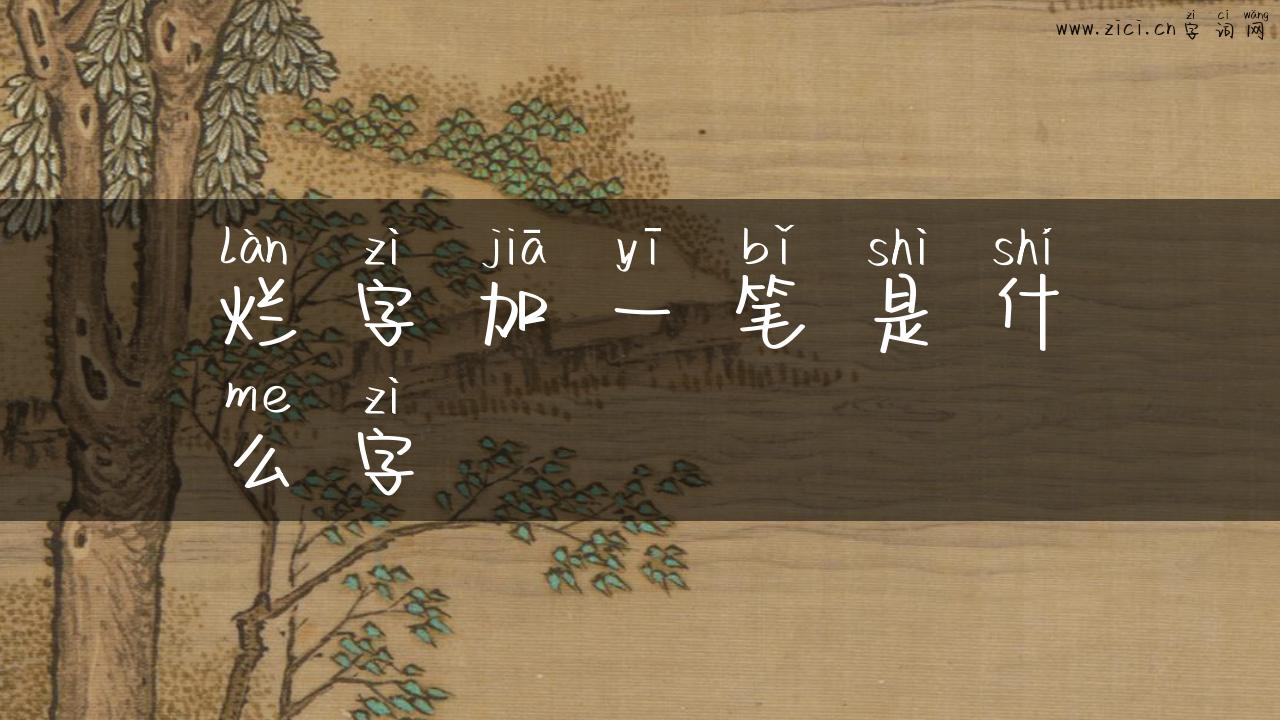 zì cí wǎng
www.zici.cn 字词网
làn zì jiā yī bǐ shì shí
烂字加一笔是什
me zì
么字